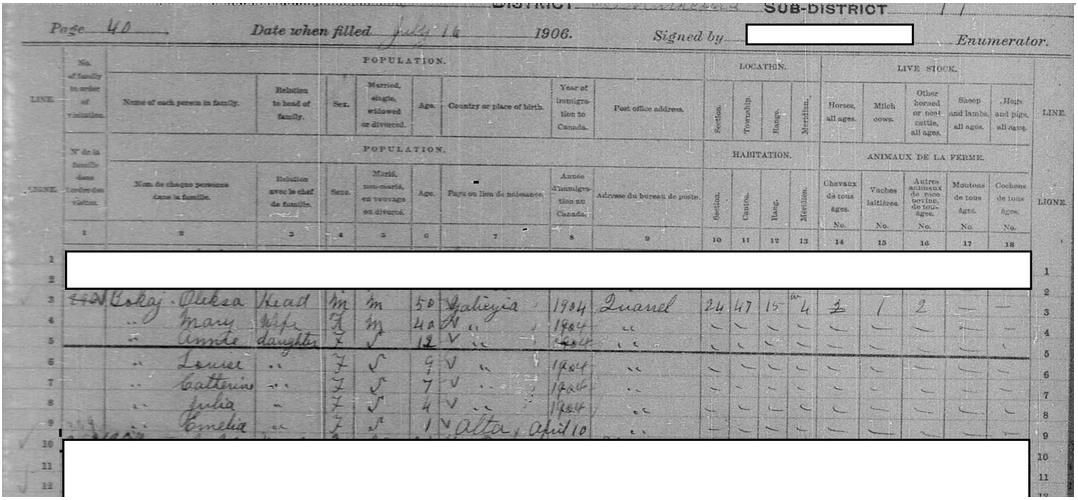 DISTRICT SUB-DISTRICT 11
Page 40 Date when filled July 16 1906. Signed by Enumerator.
LINE. No. of family in order of visitation. POPULATION. LOCATION. LIVE STOCK. LINE.
Name of each person in family. Relation to head of family. Sex. Married, single, widowed or divorced. Age. Country or place of birth. Year of immigration to Canada. Post office address. Section. Township. Range. Meridian. Horses, all ages. Milch cows. Other horned or neat cattle, all ages. Sheep and lambs, all ages. Hogs and pigs, all ages.
LIGNE. N° de la famille dans l'ordre des visites. POPULATION. HABITATION. ANIMAUX DE LA FERME. LIGNE.
Nom de chaque personne dans la famille. Relation avec le chef de famille. Sexe. Marié, non-marié, en veuvage ou divorcé. Age. Pays ou lieu de naissance. Année d'immigration au Canada. Adresse du bureau de poste. Section. Canton. Rang. Méridien. Chevaux de tous âges. Vaches laitières. Autres animaux de race bovine, de tous âges. Moutons de tous âges. Cochons de tous âges.
No. No. No. No. No.
1 2 3 4 5 6 7 8 9 10 11 12 13 14 15 16 17 18
1 1
2 2
3 Bokaj Oleksa Head M M 50 Galicyia 1904 Quarrel 24 47 15 W 4 2 1 2 — — 3
4 " Mary Wife F M 40 V " 1904 " — — — — — — — — — 4
5 " Annie daughter F S 12 V 1904 — — — — — — — — — 5
6 " Louise " F S 9 V " 1904 " — — — — — — — — — 6
7 " Catherine " F S 7 V " 1904 " — — — — — — — — — 7
8 " Julia " F S 4 V " 1904 " — — — — — — — — — 8
9 " Emelia " F S 1 V Alta, April 10 " — — — — — — — — — 9
10 10
11 11
12 12